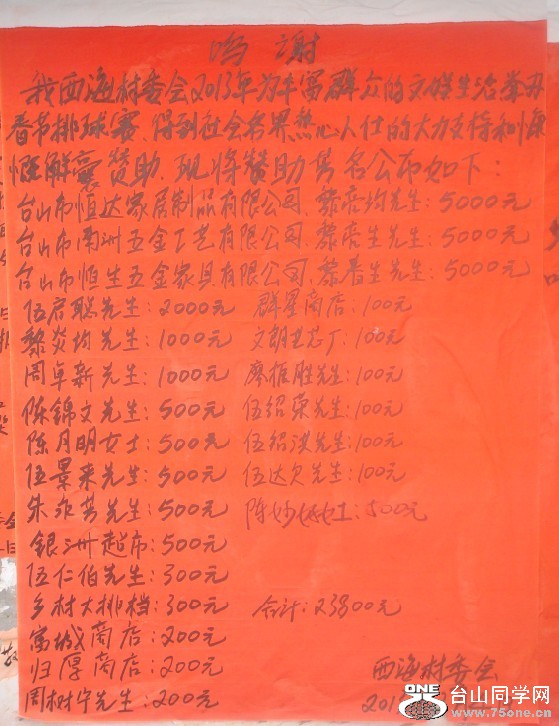 鸣谢
我西海村委会2013年为丰富群众的文娱生活举办
春节排球赛.得到社会各界热心人仕的大力支持和慷
慨解囊赞助.现将赞助芳名公布如下:
台山市恒达家居制品有限公司.黎彦均先生:5000元
台山市南洲五金工艺有限公司.黎彦生先生:5000元
台山市恒生五金家具有限公司.黎春生先生:5000元
伍启聪先生:2000元 群星商店:100元
黎炎均先生:1000元 文朗芝芯厂:100元
周卓新先生:1000元 廖振胜先生:100元
陈锦文先生:500元 伍绍荣先生:100元
陈月明女士:500元 伍绍洪先生:100元
伍景来先生:500元 伍达欠先生:100元
朱永芳先生:500元 陈妙女士:500元
银洲超市:500元
伍仁伯先生:300元
乡村大排档:300元 合计:23800元
富城商店:200元
归厚商店:200元 西海村委会
周树宁先生:200元 201
ONE 台山同学网
www.75one.cn